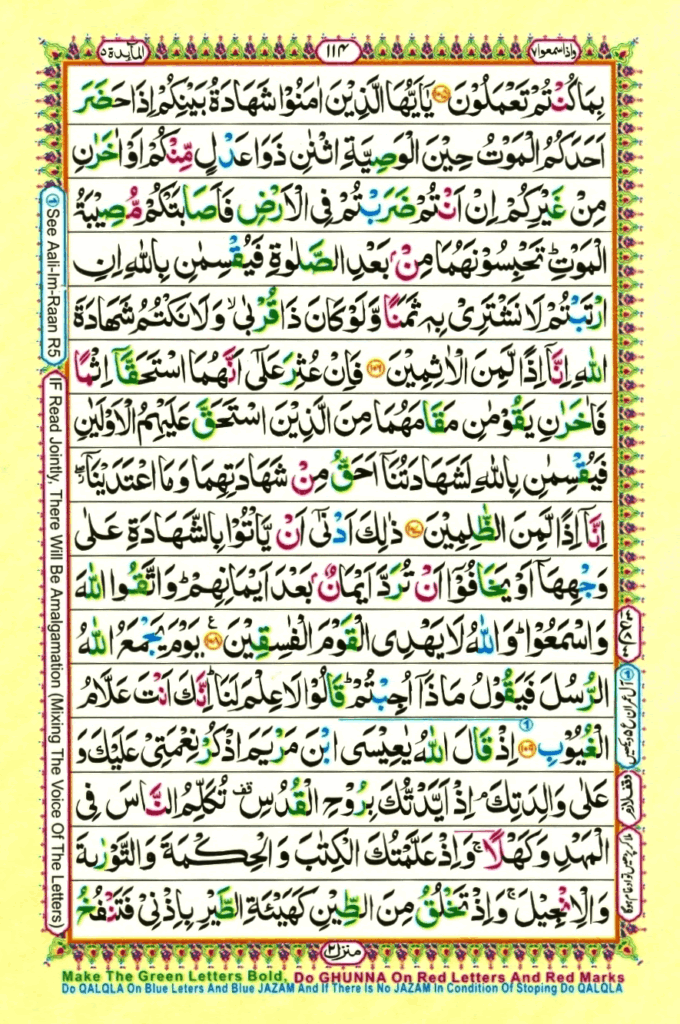 واذاسمعوا٧
١١٤
المآىِٕدة٥
بِمَا كُنْتُمْ تَعْمَلُوْنَ ﴿١٠٥﴾ يٰۤاَيُّهَا الَّذِيْنَ اٰمَنُوْا شَهَادَةُ بَيْنِكُمْ اِذَا حَضَرَ
اَحَدَكُمُ الْمَوْتُ حِيْنَ الْوَصِيَّةِ اثْنٰنِ ذَوَا عَدْلٍ مِّنْكُمْ اَوْ اٰخَرٰنِ
مِنْ غَيْرِكُمْ اِنْ اَنْتُمْ ضَرَبْتُمْ فِى الْاَرْضِ فَاَصَابَتْكُمْ مُّصِيْبَةُ
الْمَوْتِؕ تَحْبِسُوْنَهُمَا مِنْۢ بَعْدِ الصَّلٰوةِ فَيُقْسِمٰنِ بِاللّٰهِ اِنِ
ارْتَبْتُمْ لَا نَشْتَرِىْ بِهٖ ثَمَنًا وَّلَوْ كَانَ ذَا قُرْبٰىۙ وَلَا نَكْتُمُ شَهَادَةَ
اللّٰهِ اِنَّاۤ اِذًا لَّمِنَ الْاٰثِمِيْنَ ﴿١٠٦﴾ فَاِنْ عُثِرَ عَلٰۤى اَنَّهُمَا اسْتَحَقَّاۤ اِثْمًا
فَاٰخَرٰنِ يَقُوْمٰنِ مَقَامَهُمَا مِنَ الَّذِيْنَ اسْتَحَقَّ عَلَيْهِمُ الْاَوْلَيٰنِ
فَيُقْسِمٰنِ بِاللّٰهِ لَشَهَادَتُنَاۤ اَحَقُّ مِنْ شَهَادَتِهِمَا وَمَا اعْتَدَيْنَاۤ ۖ
اِنَّاۤ اِذًا لَّمِنَ الظّٰلِمِيْنَ ﴿١٠٧﴾ ذٰلِكَ اَدْنٰۤى اَنْ يَّاْتُوْا بِالشَّهَادَةِ عَلٰى
وَجْهِهَاۤ اَوْ يَخَافُوْۤا اَنْ تُرَدَّ اَيْمَانٌۢ بَعْدَ اَيْمَانِهِمْؕ وَاتَّقُوا اللّٰهَ
وَاسْمَعُوْاؕ وَاللّٰهُ لَا يَهْدِى الْقَوْمَ الْفٰسِقِيْنَ ﴿١٠٨﴾ يَوْمَ يَجْمَعُ اللّٰهُ
الرُّسُلَ فَيَقُوْلُ مَاذَاۤ اُجِبْتُمْؕ قَالُوْا لَا عِلْمَ لَنَاؕ اِنَّكَ اَنْتَ عَلَّامُ
الْغُيُوْبِ ﴿١٠٩﴾ اِذْ قَالَ اللّٰهُ يٰعِيْسَى ابْنَ مَرْيَمَ اذْكُرْ نِعْمَتِىْ عَلَيْكَ وَ
عَلٰى وَالِدَتِكَۘ اِذْ اَيَّدْتُّكَ بِرُوْحِ الْقُدُسِ قف تُكَلِّمُ النَّاسَ فِى
الْمَهْدِ وَكَهْلًاۚ وَاِذْ عَلَّمْتُكَ الْكِتٰبَ وَالْحِكْمَةَ وَالتَّوْرٰىةَ
وَالْاِنْجِيْلَۚ وَاِذْ تَخْلُقُ مِنَ الطِّيْنِ كَهَيْـَٔةِ الطَّيْرِ بِاِذْنِىْ فَتَنْفُخُ
منزل٢
① See Aali-Im-Raan R5
(IF Read Jointly, There Will Be Amalgamation (Mixing The Voice Of The Letters)
Make The Green Letters Bold. Do GHUNNA On Red Letters And Red Marks
Do QALQLA On Blue Leters And Blue JAZAM And If There Is No JAZAM In Condition Of Stoping Do QALQLA